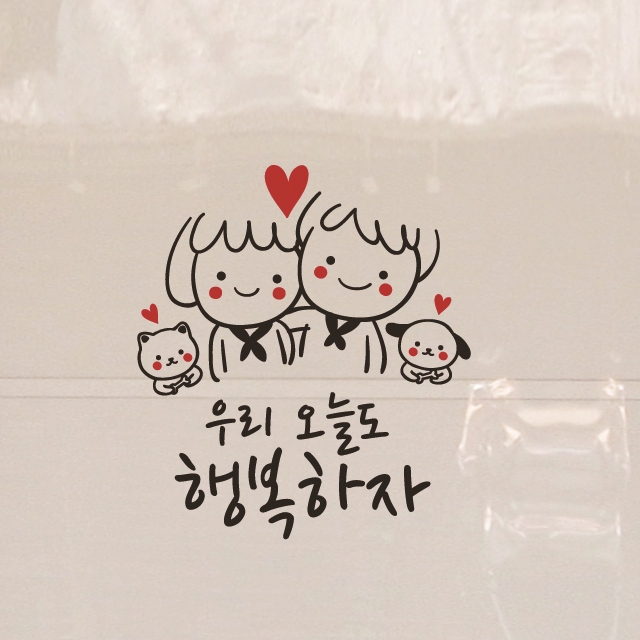 우리 오늘도
행복하자